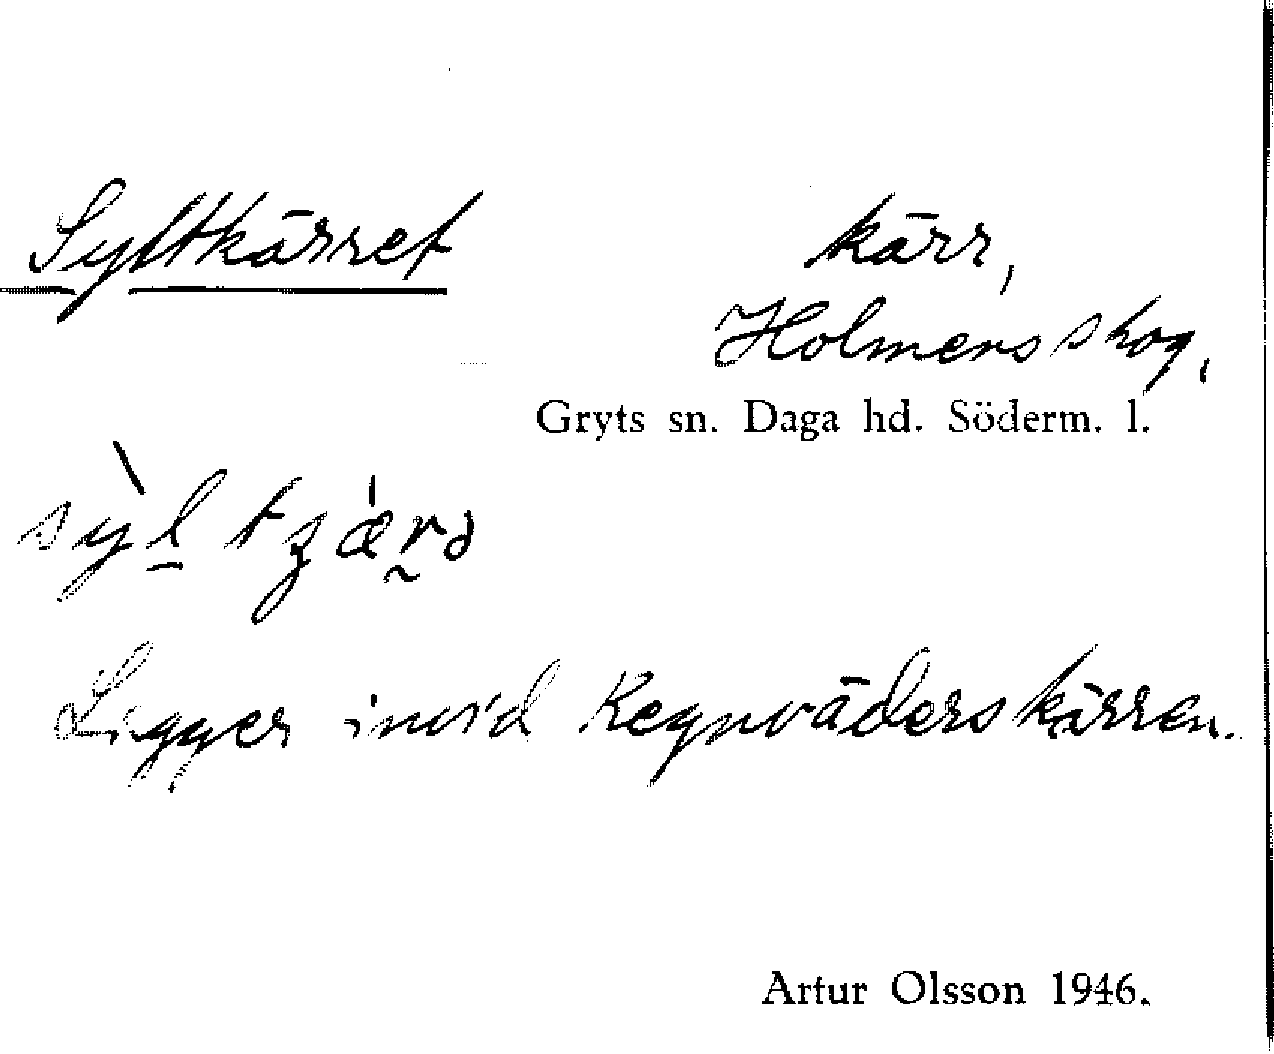 Syltkärret
kärr,
Holmens skog,
Gryts sn. Daga hd. Söderm. l.
Ligger invid Regnväderskärren.
Artur Olsson 1946.